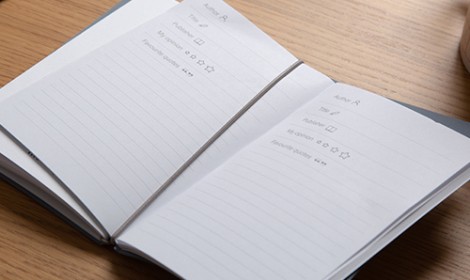 Author
Title
Publisher
My opinion
Favourite quotes
Author
Title
Publisher
My opinion
Favourite quotes